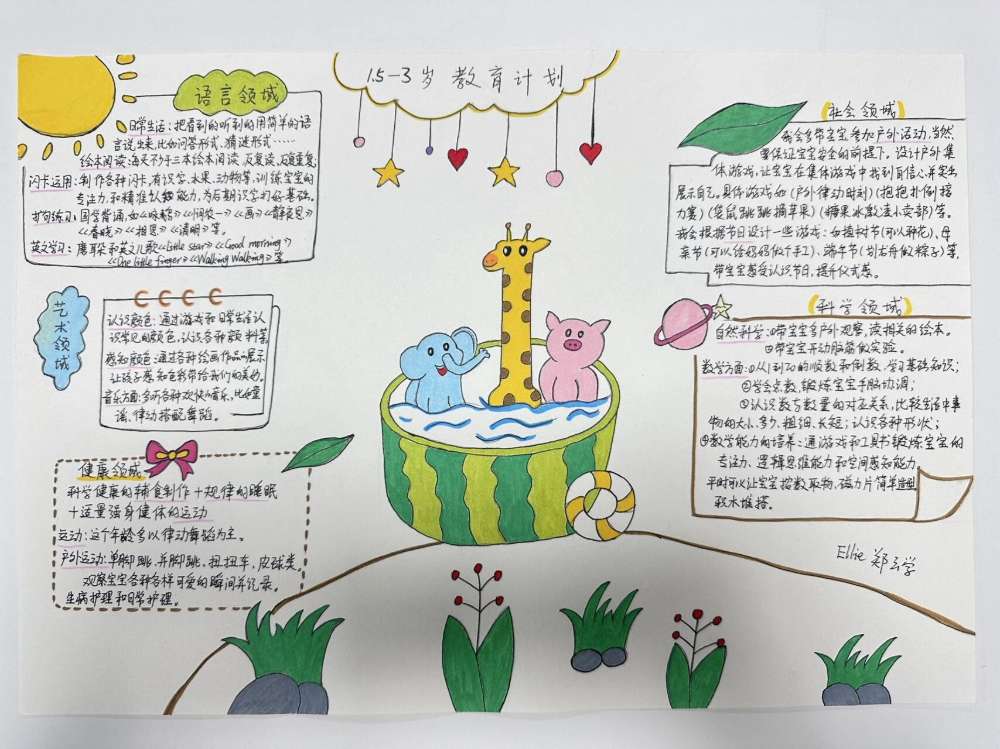 1.5-3岁教育计划
语言领域
日常生活:把看到的听到的用简单的语
言说出来,比如问答形式、猜谜形式……
绘本阅读:每天不少于三本绘本阅读,反复读,反复重复;
闪卡运用:制作各种闪卡,有识字、水果、动物等,训练宝宝的
专注力和精准认知能力,为后期识字打好基础。
扩句练习:国学背诵,如《咏鹅》《一去二三里》《画》《静夜思》
《春晓》《相思》《清明》等。
英文学习:磨耳朵和英文儿歌《little star》《Good morning》
《One little finger》《Walking Walking》等
艺术领域
认识颜色:通过游戏和日常生活认
识常见的颜色,认识各种颜料等
感知颜色:通过各种绘画作品的展示
让孩子感知色彩带给我们的美妙。
音乐方面:多听各种欢快的音乐,比如童
谣、律动搭配舞蹈。
健康领域
科学健康的辅食制作+规律的睡眠
+适量强身健体的运动
运动:这个年龄多以律动舞蹈为主。
户外运动:单脚跳、并脚跳、扭扭车、皮球类。
观察宝宝各种各样可爱的瞬间并记录。
生病护理和日常护理。
社会领域
我会多带宝宝参加户外活动,当然
要保证宝宝安全的前提下,设计户外集
体游戏,让宝宝在集体游戏中找到自信心,并突出
展示自己。具体游戏如(户外律动时刻)(抱抱扑倒接
力赛)(袋鼠跳跳摘苹果)(糖果冰激凌小卖部)等。
我会根据节日设计一些游戏:如植树节(可以种花)、母
亲节(可以给妈妈做手工)、端午节(划龙舟做粽子)等,
带宝宝感受认识节日,提升仪式感。
科学领域
自然科学:①带宝宝多户外观察,读相关的绘本。
②带宝宝开动脑筋做实验。
数学方面:①从1到20的顺数和倒数,学习基础知识;
②学会点数,锻炼宝宝手脑协调;
③认识数与数量的对应关系,比较生活中事
物的大小、多少、粗细、长短;认识各种形状;
④数学能力的培养:通游戏和工具书锻炼宝宝的
专注力、逻辑思维能力和空间感知能力
平时可以让宝宝按数取物,磁力片简单造型
积木堆搭。
Ellie 郑